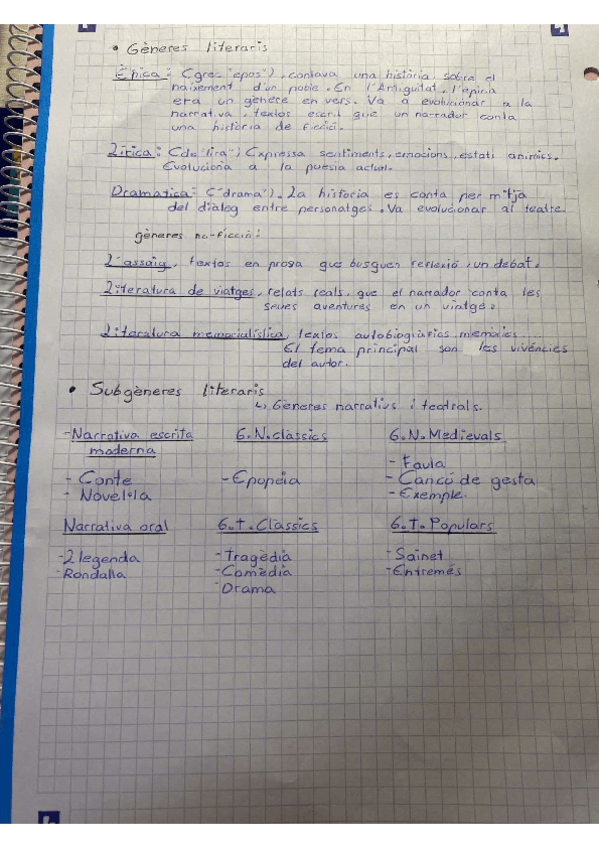 • Gèneres literaris
Èpica: (grec "epos"), contava una història sobre el
naixement d'un poble. En l'Antiguitat, l'èpica
era un gènere en vers. Va a evolucionar a la
narrativa, textos escrit que un narrador conta
una història de ficció.
Lírica: (de "lira") Expressa sentiments, emocions, estats anímics.
Evoluciona a la puesia actual.
Dramàtica: ("drama"). La història es conta per mitja
del dialeg entre personatges. Va evolucionar al teatre.
gèneres no-ficció:
L'assaig, textos en prosa que busquen reflexió, un debat.
Literatura de viatges, relats reals, que el narrador conta les
seues aventures en un viatge.
Literatura memorialística, textos autobiogràfics, memòries....
El tema principal son les vivéncies
del autor.
• Subgèneres literaris
↳ Gèneres narratius i teatrals.
-Narrativa escrita moderna
- Conte
- Novel·la
G.N.classics
-Epopeia
G.N.Medievals
- Faula
- Cancó de gesta
- Exemple.
Narrativa oral
-Llegenda
-Rondalla
G.T.Classics
-Tragèdia
-Comèdia
-Drama
G.T.Populars
-Sainet
-Entremés